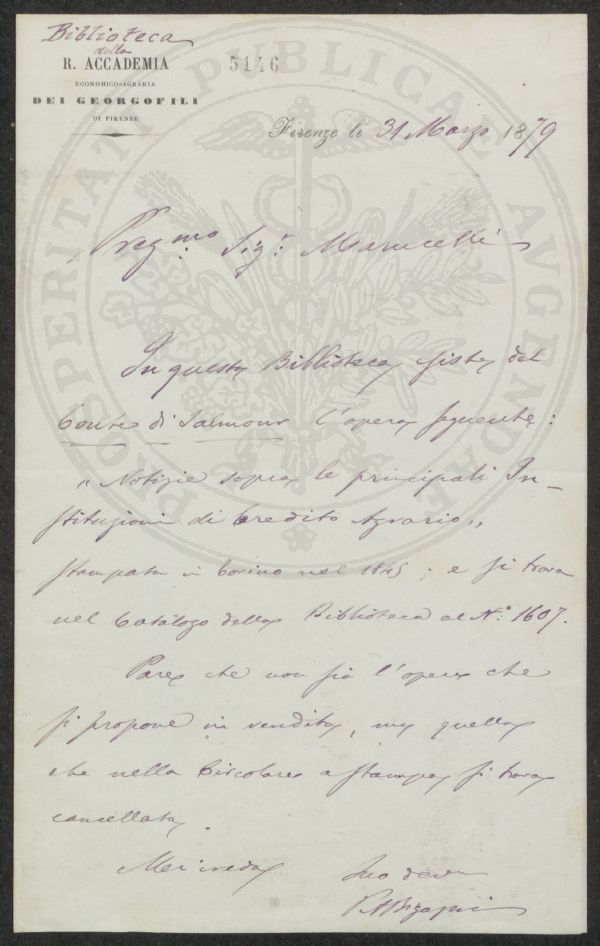 Biblioteca
della
R. ACCADEMIA
ECONOMICO-AGRARIA
DEI GEORGOFILI
DI FIRENZE
5146
Firenze li 31 Marzo 1879
Preg.mo Sig.r Marucelli
In questa Biblioteca esiste del
Conte di Salmour l'opera seguente:
"Notizie sopra le principali In-
stituzioni di Credito Agrario"
stampata in Torino nel 1845; e si trova
nel Catalogo della Biblioteca al N.° 1607.
Pare che non sia l'opera che
si propone in vendita, ma quella
che nella Circolare a stampa si trova
cancellata
Mi creda
Suo dev
PROSPERITATI PUBLICAE AVGENDAE